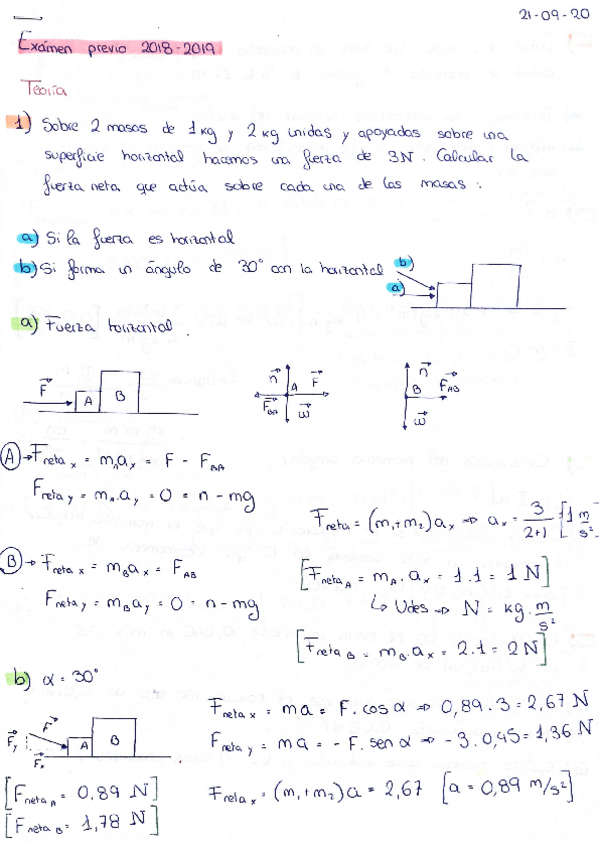 21-09-20
Exámen previo 2018-2019
Teoría
1) Sobre 2 masas de 1 kg y 2 kg unidas y apoyadas sobre una
superficie horizontal hacemos una fuerza de 3N. Calcular la
fuerza neta que actúa sobre cada una de las masas:
a) Si la fuerza es horizontal
b) Si forma un ángulo de 30° con la horizontal
b)
a)
a) Fuerza horizontal.
F⃗ A B
n⃗ A F⃗ F⃗BA w⃗
n⃗ B F⃗AB w⃗
A → Fneta x = mₐaₓ = F - FBA
Fneta y = mₐ.a_y = 0 = n - mg
Fneta = (m₁+m₂)aₓ ⇒ aₓ = 3/(2+1) [1 m/s²
B → Fneta x = m_B aₓ = FAB
Fneta y = m_B a_y = 0 = n - mg
[Fneta A = mA . aₓ = 1.1 = 1N]
↳ Udes ⇒ N = kg . m/s²
[Fneta B = m_B . aₓ = 2.1 = 2N]
b) α = 30°
F⃗y F⃗ A B F⃗x
Fneta x = ma = F. cos α ⇒ 0,89 . 3 = 2,67 N
Fneta y = ma = - F. sen α ⇒ - 3.0,45 = 1,36 N
Fneta x = (m₁+m₂)a = 2,67 [a = 0,89 m/s²]
[Fneta A = 0.89 N]
[Fneta B = 1,78 N]